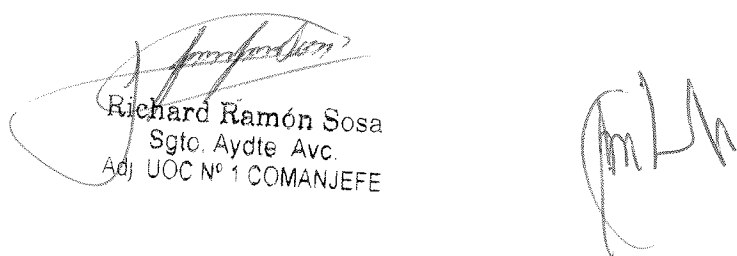 Richard Ramón Sosa
Sgto. Aydte Avc.
Adj UOC Nº 1 COMANJEFE